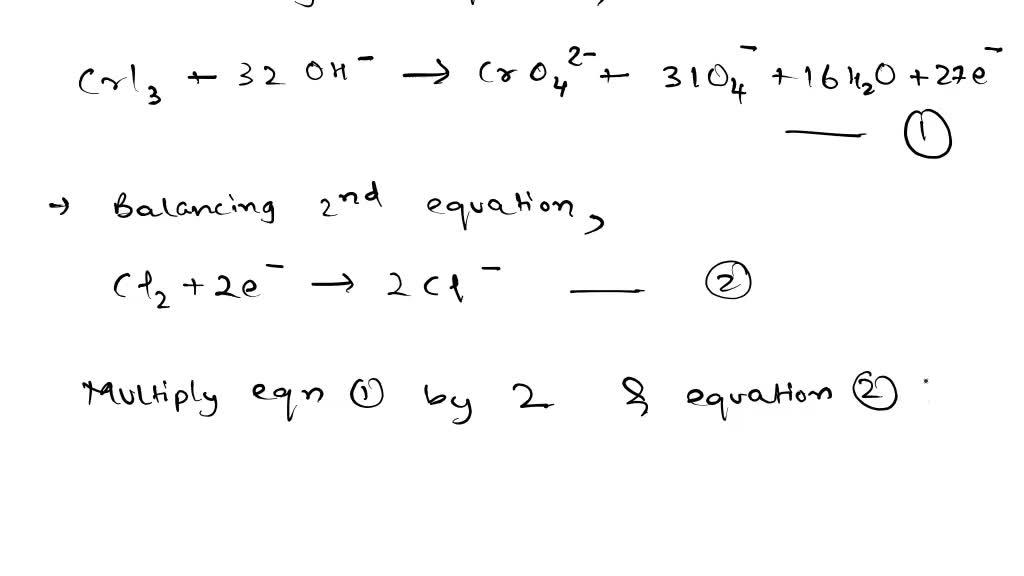 CrI₃ + 32 OH⁻ → CrO₄²⁻ + 3IO₄⁻ + 16 H₂O + 27e⁻
—— ①
→ Balancing 2nd equation,
Cl₂ + 2e⁻ → 2Cl⁻ —— ②
Multiply eqn ① by 2 & equation ②